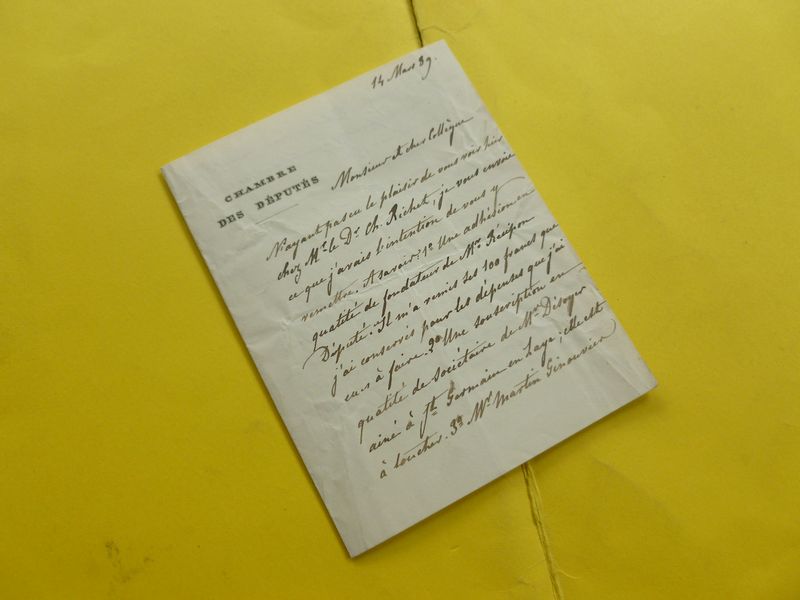 14 Mars 89.
CHAMBRE
DES DÉPUTÉS
Monsieur et cher Collègue
N'ayant pas eu le plaisir de vous voir hier
chez Mr. le Dr. Ch. Richet, je vous envoie
ce que j'avais l'intention de vous y
remettre. A savoir: 1º Une adhésion en
qualité de fondateur de Mr. Récipon
Député. Il m'a remis ses 100 francs que
j'ai conservés pour les dépenses que j'ai
eues à faire. 2º Une souscription en
qualité de sociétaire de Mr. Desoyer
ainé à St. Germain en Laye; elle est
à toucher. 3º Mr. Martin Ginouvier